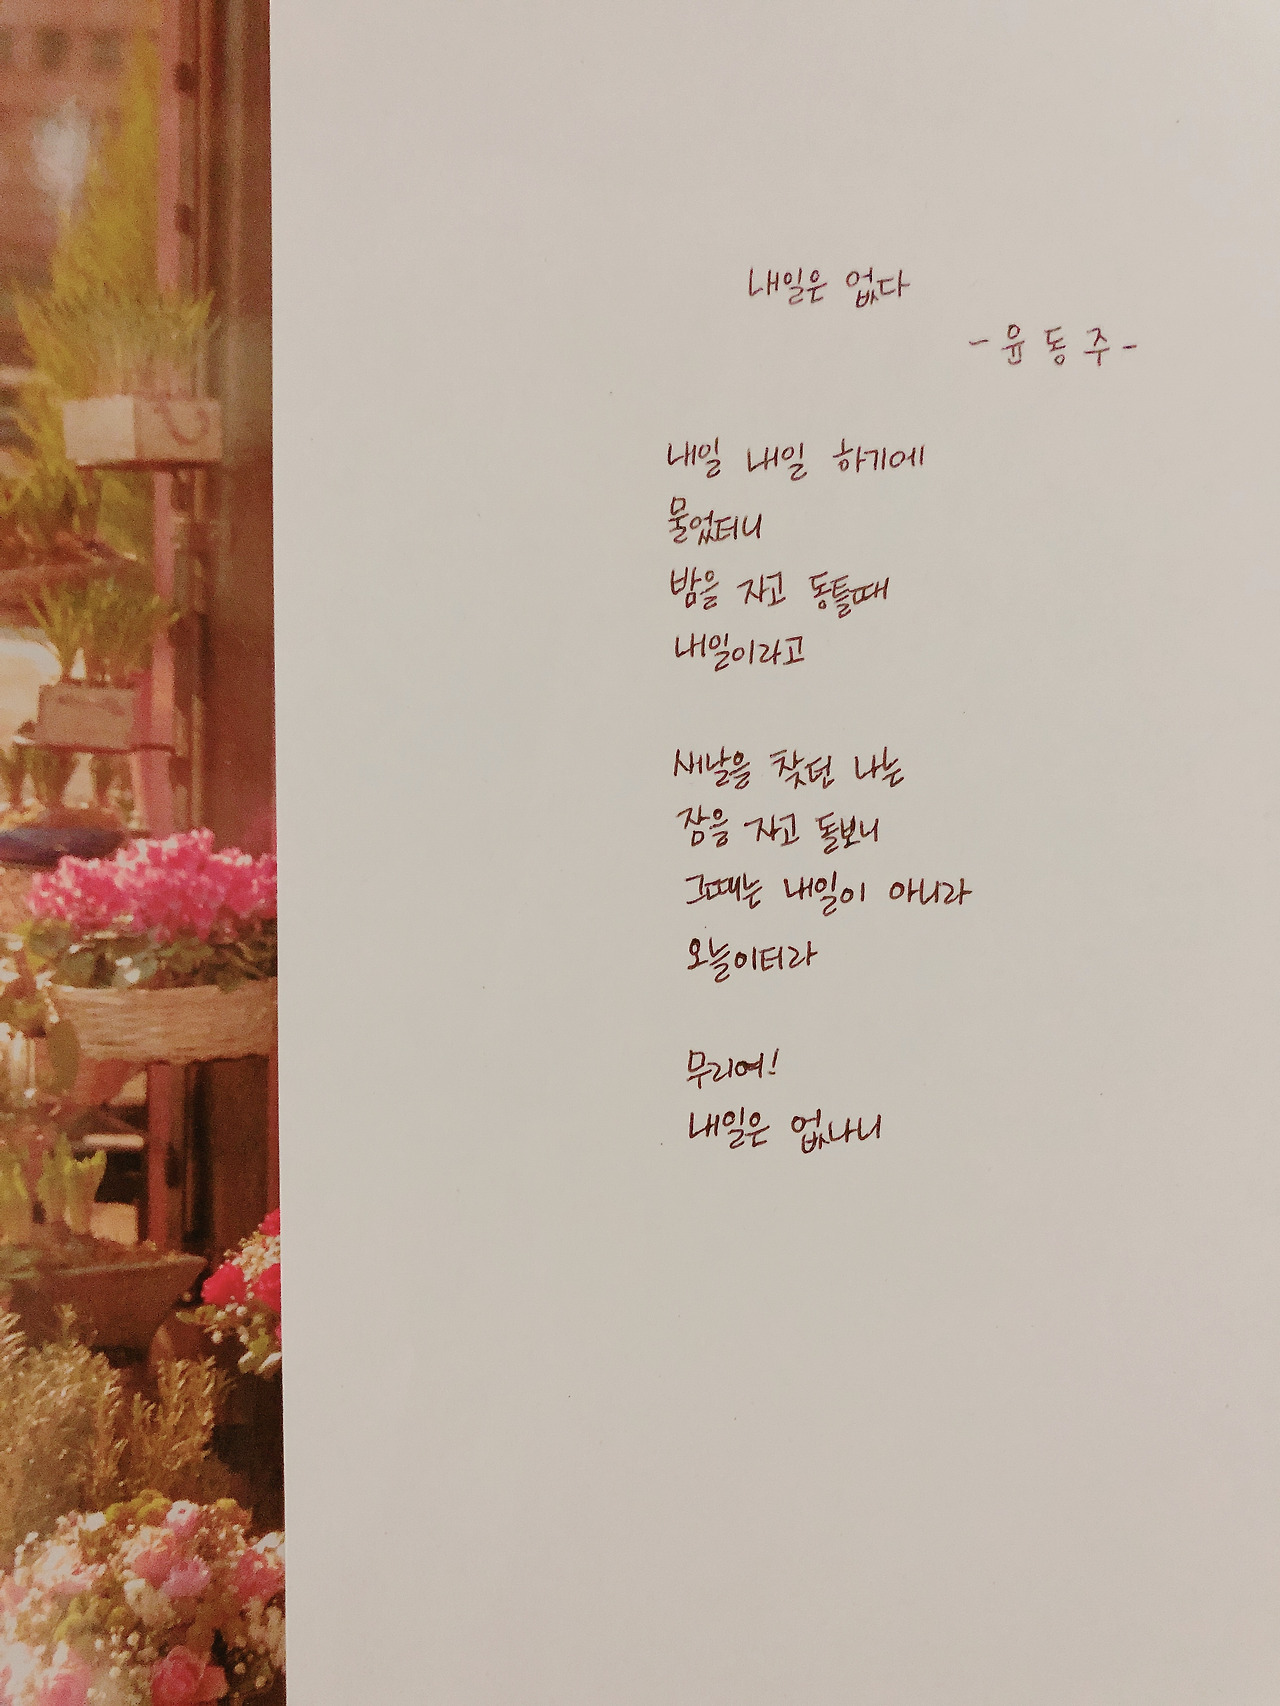 내일은 없다
- 윤 동 주 -
내일 내일 하기에
물었더니
밤을 자고 동틀때
내일이라고
새날을 찾던 나는
잠을 자고 돌보니
그때는 내일이 아니라
오늘이더라
무리여!
내일은 없나니